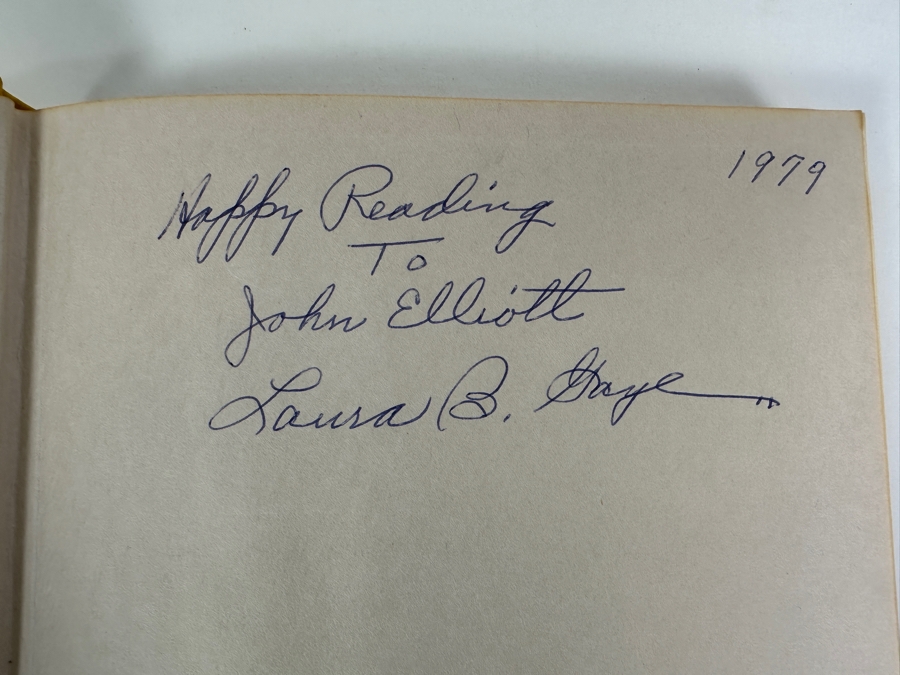 1979
Happy Reading
To
John Elliott
Laura B. Gaye